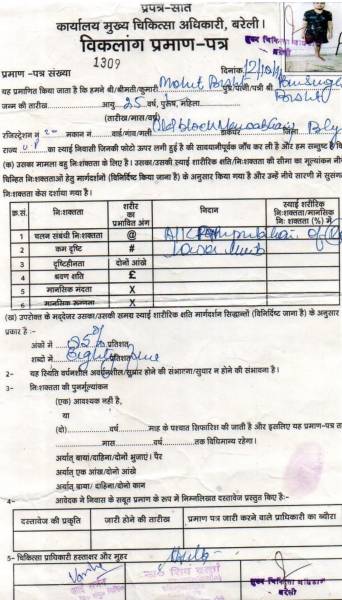 प्रपत्र-सात
कार्यालय मुख्य चिकित्सा अधिकारी, बरेली।
विकलांग प्रमाण-पत्र
मुख्य चिकित्सा अधिकारी
बरेली
प्रमाण -पत्र संख्या
1309
दिनांक 12/10/
यह प्रमाणित किया जाता है कि हमने श्री/श्रीमती/कुमारी Mohit पुत्र/पत्नी/पत्री श्री
जन्म की तारीख आयु 25 वर्ष, पुरूष, महिला
(तारीख/मास/वर्ष)
रजिस्टेशन नं मकान नं वार्ड/गांव/गली डाकघर जिला Bly
राज्य U.P का स्थाई निवासी जिनकी फोटो ऊपर लगी हुई है की सावधानीपूर्वक जाँच कर ली है और हम सन्तुष्ट है कि
(क) उसका मामला बहु निःशक्तता के लिए है। उसका/उसकी स्थाई शारीरिक क्षति/निःशक्तता की सीमा का मूल्यांकन नीचे
चिन्हित निःशक्तताओं हेतु मार्गदर्शनों (विनिर्दिष्ट किया जाना है) के अनुसार किया गया है और उन्हें नीचे सारणी में सुसंगत
निःशक्तता केस दर्शाया गया है।
क्र.सं. निःशक्तता शरीर का प्रभावित अंग निदान स्थाई शरीरिक निःशक्तता/मानसिक निःशक्तता (% में)
1 चलन सबंधी निःशक्तता @
2 कम दृष्टि #
3 दृष्टिहीनता दोनों आंखे
4 श्रवण शति £
5 मानसिक मंदता X
6 मानसिक रूग्णता X
(ख) उपरोक्त के मद्देजर उसका/उसकी समग्र स्थाई शारीरिक क्षति मार्गदर्शन सिद्धान्तों (विनिर्दिष्ट जाना है) के अनुसार
प्रकार है :-
अंकों में 85 % प्रतिशत
शब्दो में Eighty five प्रतिशत
2- यह स्थिति वर्धनशील अवर्धनशील/सुधार होने की संभाटना/सुधार न होने की संभावना है।
3- निःशक्तता की पुनर्मूल्यांकन
(एक) आवश्यक नहीं है,
या
(दो) वर्ष माह के पश्चात सिफारिश की जाती है और इसलिए यह प्रमाण-पत्र त
मास वर्ष तक विधिमान्य रहेगा।
अर्थात् बाया/दाहिना/दोनों भुजाएं। पैर
अर्थात् एक आंख/दोनो आंखे
अर्थात् बाया/ दाहिना/दोनो कान
4- आवेदक ने निवास के सबूत प्रमाण के रूप में निम्नलिखत दस्तावेज प्रस्तुत किए है:-
दस्तावेज की प्रकृति जारी होने की तारीख प्रमाण पत्र जारी करने वाले प्राधिकारी का ब्यौरा
5- चिकित्सा प्राधिकारी हस्ताक्षर और मुहर
मुख्य चिकित्सा अधिकारी
बरेली